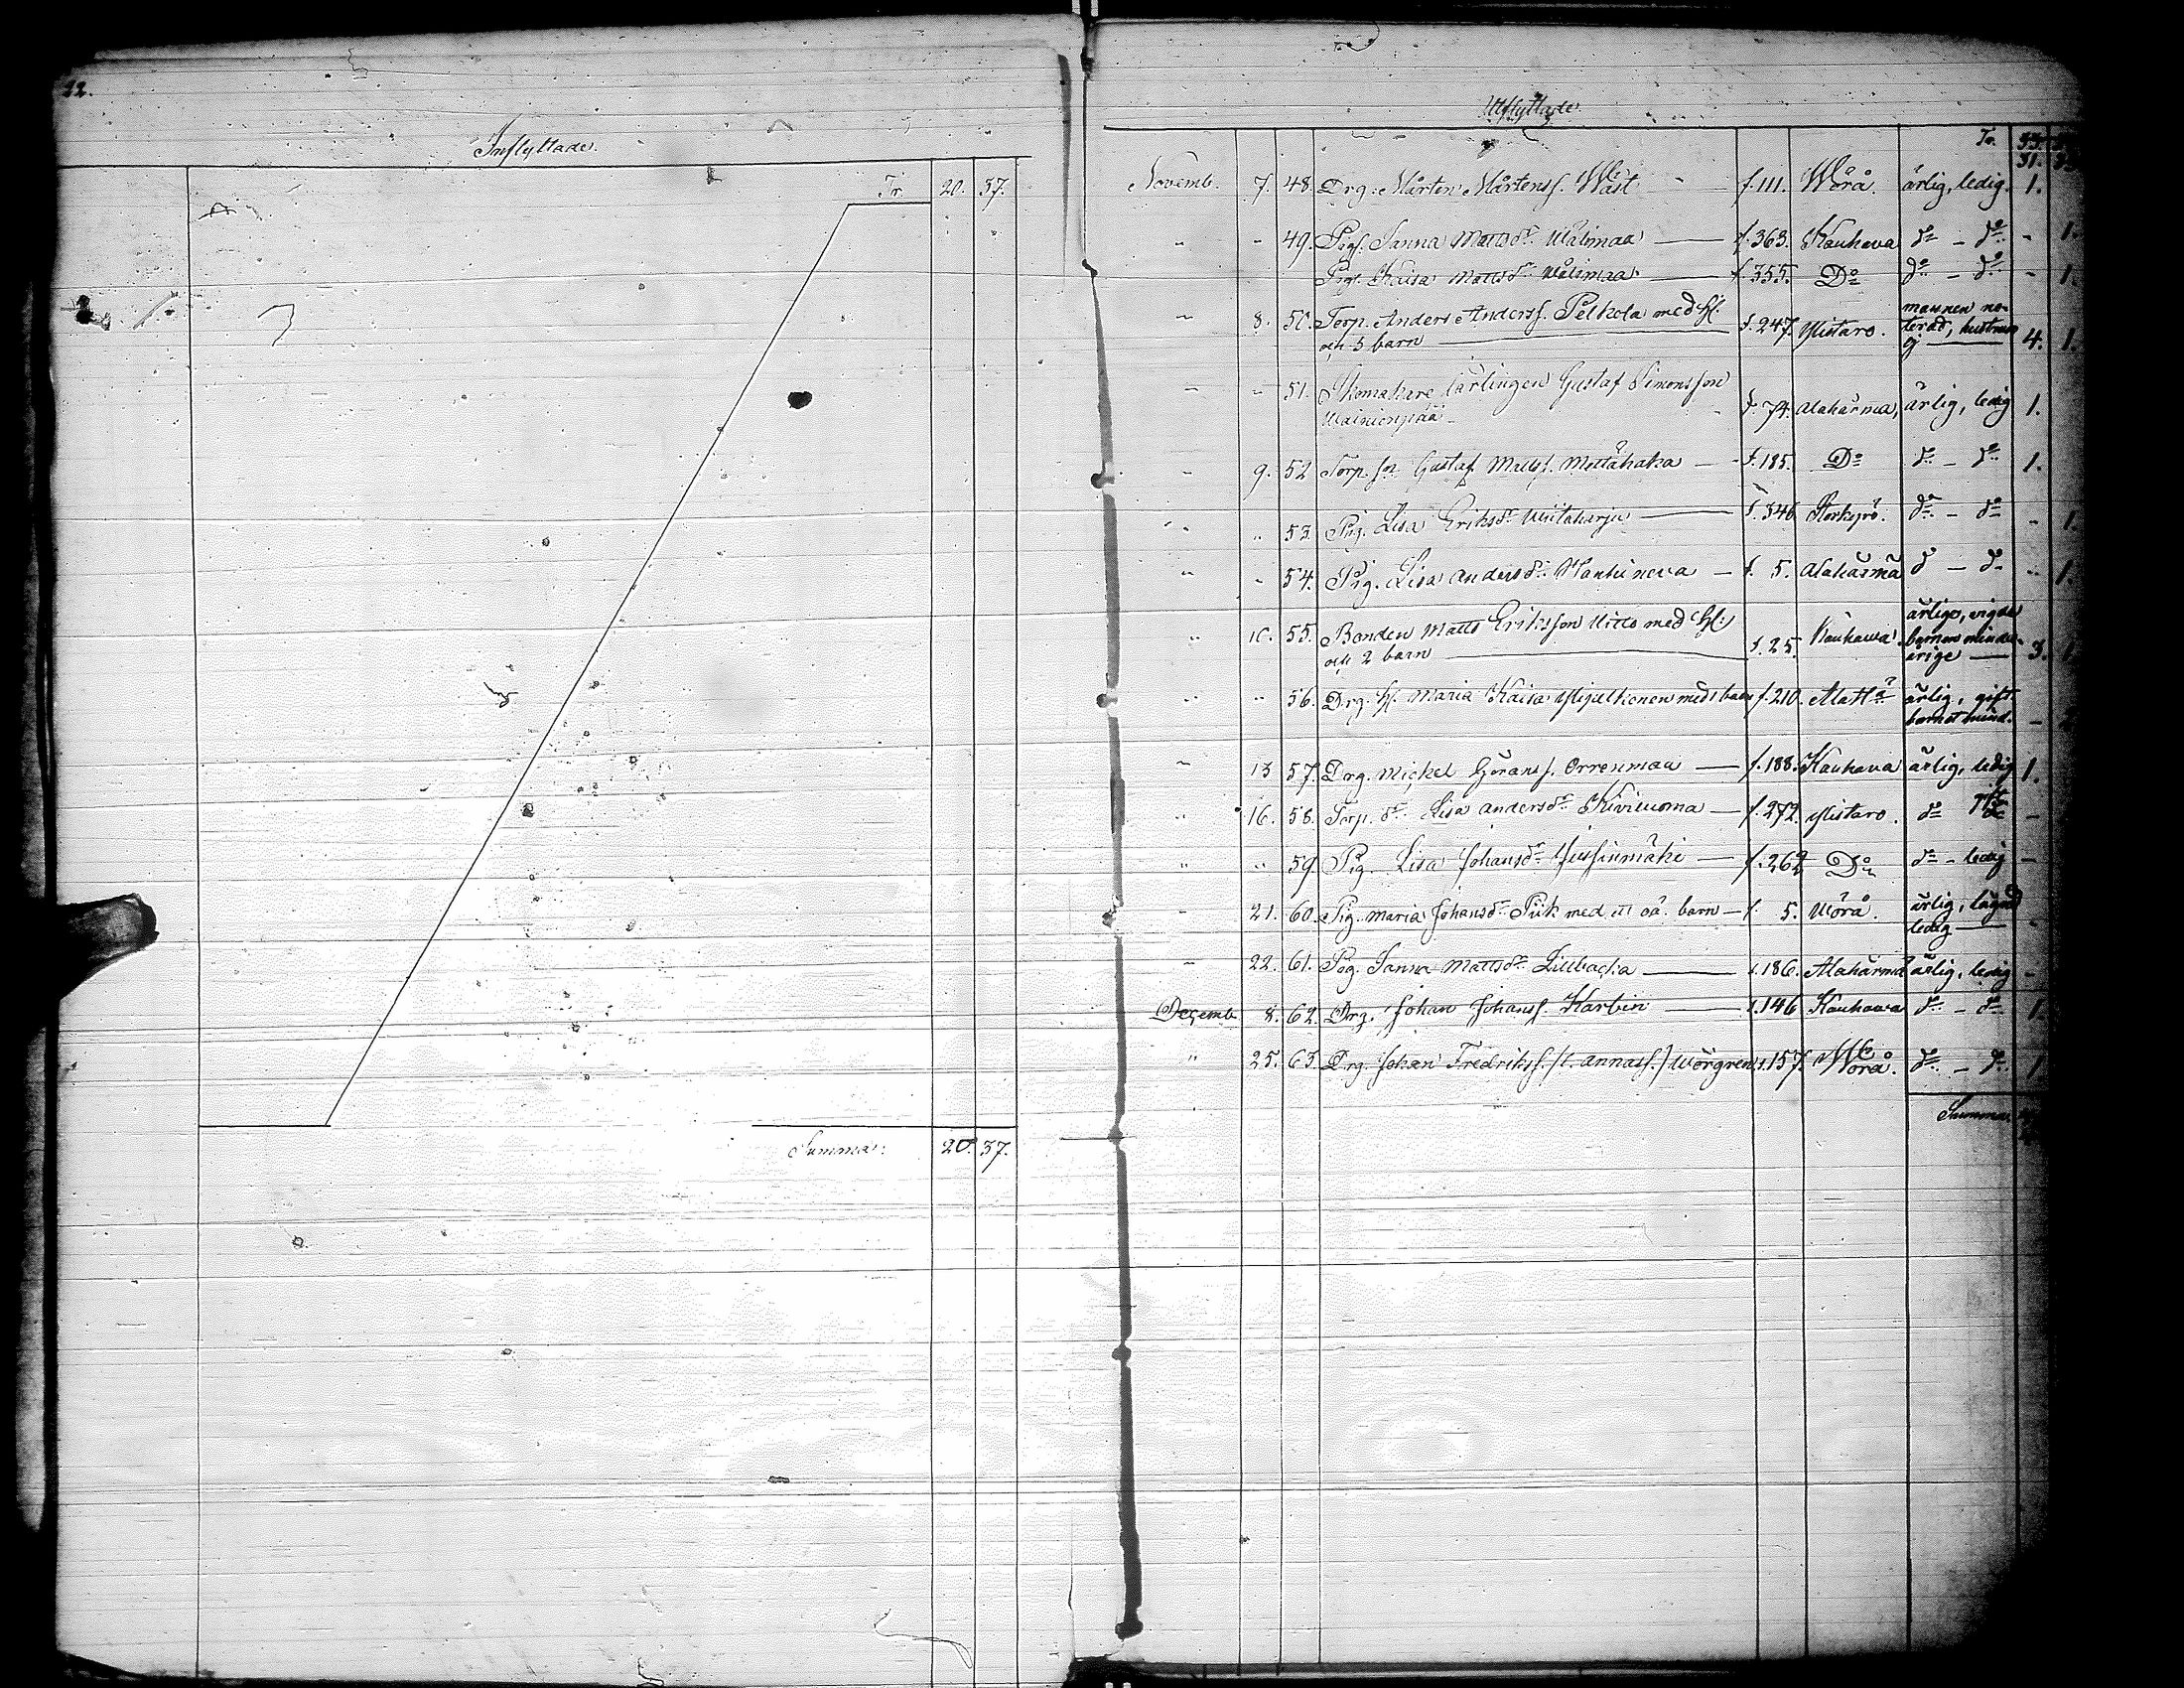 22.
Inflyttade.
Tr. 20. 37.
Summa: 20. 37.
Utflyttade.
Tr. 31.
Novemb. 7. 48. Drg. Mårten Mårtensf. Wäst f. 111. Wörå. ärlig, ledig. 1.
" " 49. Pigf. Sanna Mattsdr. Wälimaa f. 363. Kauhava do - do - 1.
Pigf. Kaisa Mattsdr. Wälimaa f. 355. Do do - do - 1.
" 8. 50. Torp. Anders Andersf. Pelkola med H. f. 247. Ylistaro. mannen no-
och 3 barn terad, hustrun
ej 4. 1.
" " 51. Skomakare lärlingen Gustaf Simonsson
Wainionpää f. 74. Alahärmä, ärlig, ledig 1.
" 9. 52 Torp. sn. Gustaf Mattsf. Mettähaka f. 185. Do do - do 1.
" " 53. Pig. Lisa Eriksdr. f. 346 Storkyrö. do - do - 1.
" " 54. Pig. Lisa Andersdr. Hanhineva f. 5. Alahärmä do - do " 1.
" 10. 55. Bonden Matts Eriksson Uitto med H. ärliga, vigde
och 2 barn f. 25. Kauhawa. barnen minder-
årige 3. 1.
" " 56. Drg. H. Maria Kaisa med 1 barn f. 210. ärlig, gift
barnet mind. -
" 13 57. Drg. Mickel Göransf. Orrenmaa f. 188. Kauhava ärlig, ledig 1.
" 16. 58. Torp. dr. Lisa Andersdr. Kiviluoma f. 272. Ylistaro. do -
" " 59. Pig. Lisa Johansdr. Jussinmäki f. 262 Do do - ledig -
" 21. 60. Pig. Maria Johansdr. Piik med ett oä. barn f. 5. Wörå. ärlig,
ledig -
" 22. 61. Pig. Sanna Mattsdr. Lillbacka f. 186. Alahärmä ärlig, ledig -
Decemb. 8. 62. Drg. Johan Johansf. Karbin f. 146 Kauhawa do - do 1.
" 25. 63. Drg. Johan Fredriksf. /l. Annasf./ Wörgren f. 157. Wörå. do - do 1
Summa.